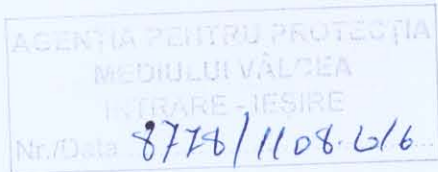 AGENȚIA PENTRU PROTECȚIA
MEDIULUI VÂLCEA
INTRARE - IEȘIRE
Nr./Data 8778/1108.2016